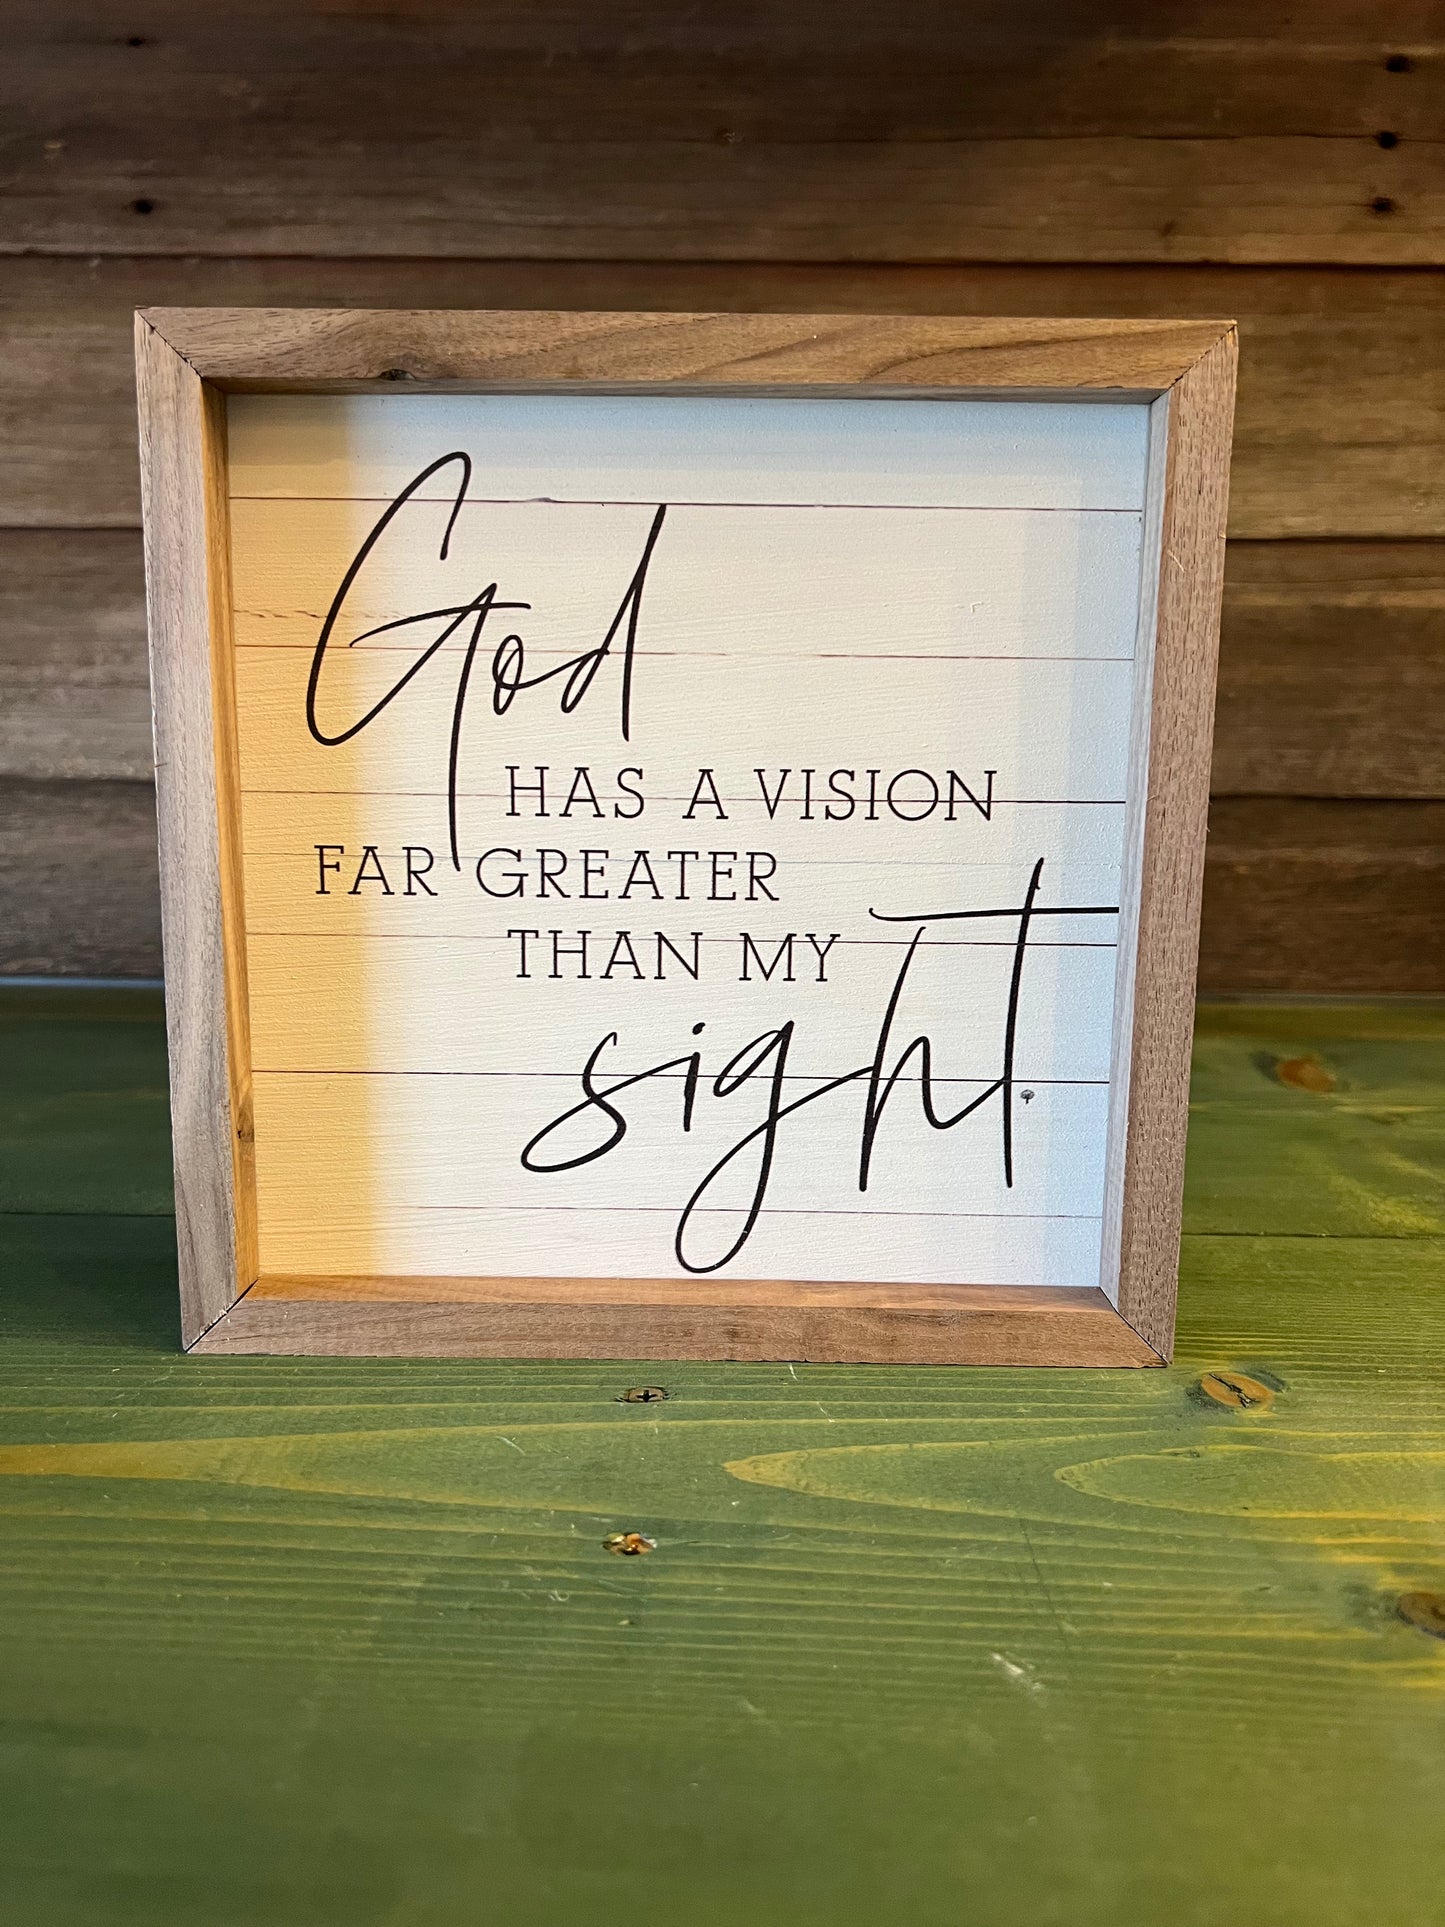 God
HAS A VISION
FAR GREATER
THAN MY
sight